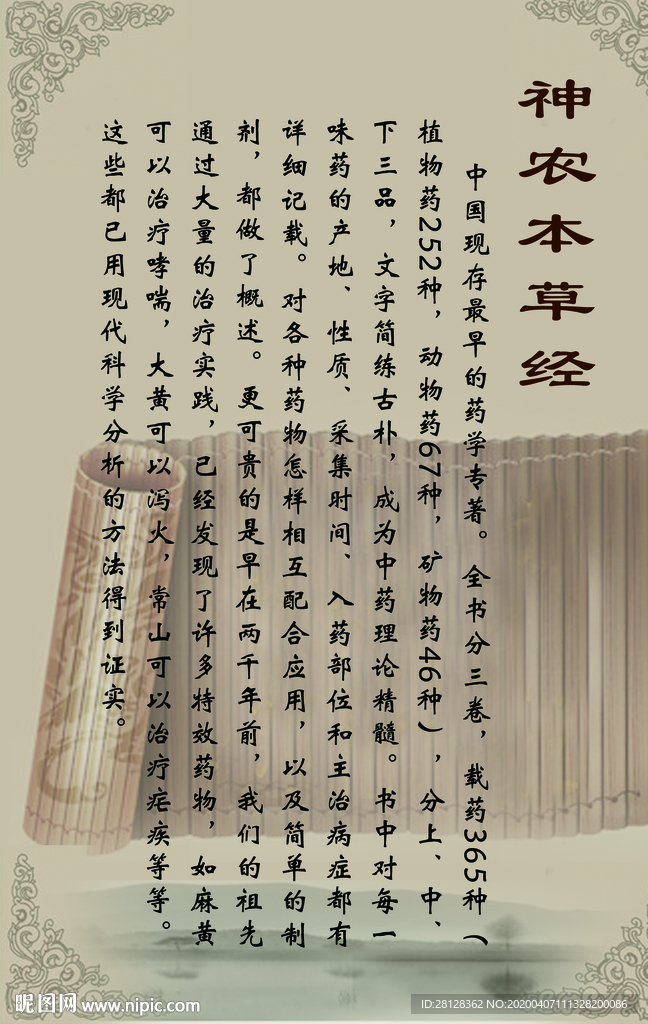 神农本草经
中国现存最早的药学专著。全书分三卷，载药365种（
植物药252种，动物药67种，矿物药46种），分上、中、
下三品，文字简练古朴，成为中药理论精髓。书中对每一
味药的产地、性质、采集时间、入药部位和主治病症都有
详细记载。对各种药物怎样相互配合应用，以及简单的制
剂，都做了概述。更可贵的是早在两千年前，我们的祖先
通过大量的治疗实践，已经发现了许多特效药物，如麻黄
可以治疗哮喘，大黄可以泻火，常山可以治疗疟疾等等。
这些都已用现代科学分析的方法得到证实。
昵图网 www.nipic.com
ID:28128362 NO:20200407111328200086